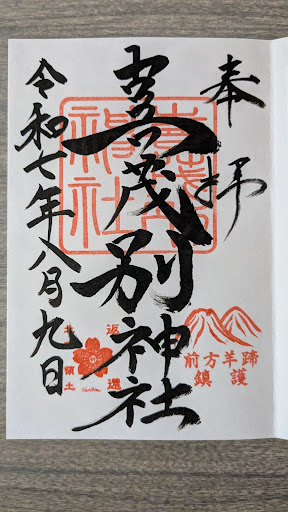 奉拝
喜茂別神社
令和七年八月九日
神社
前方羊蹄
鎮護
返還
領土